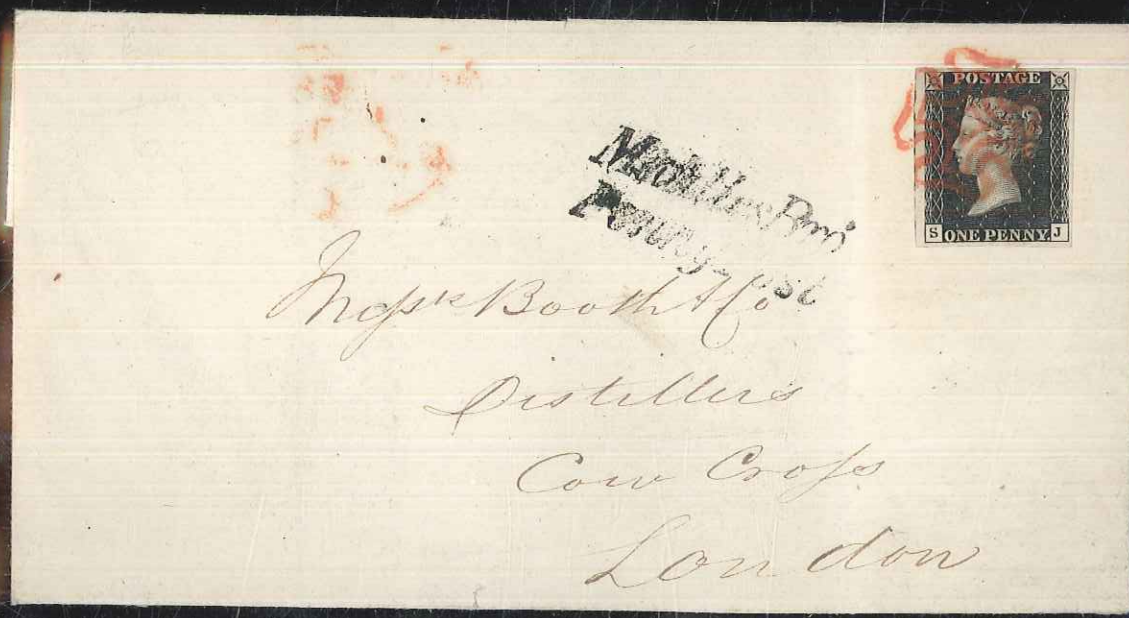 POSTAGE
S ONE PENNY. J
Penny Post
Messrs Booth & Co
Distillers
Cow Cross
London